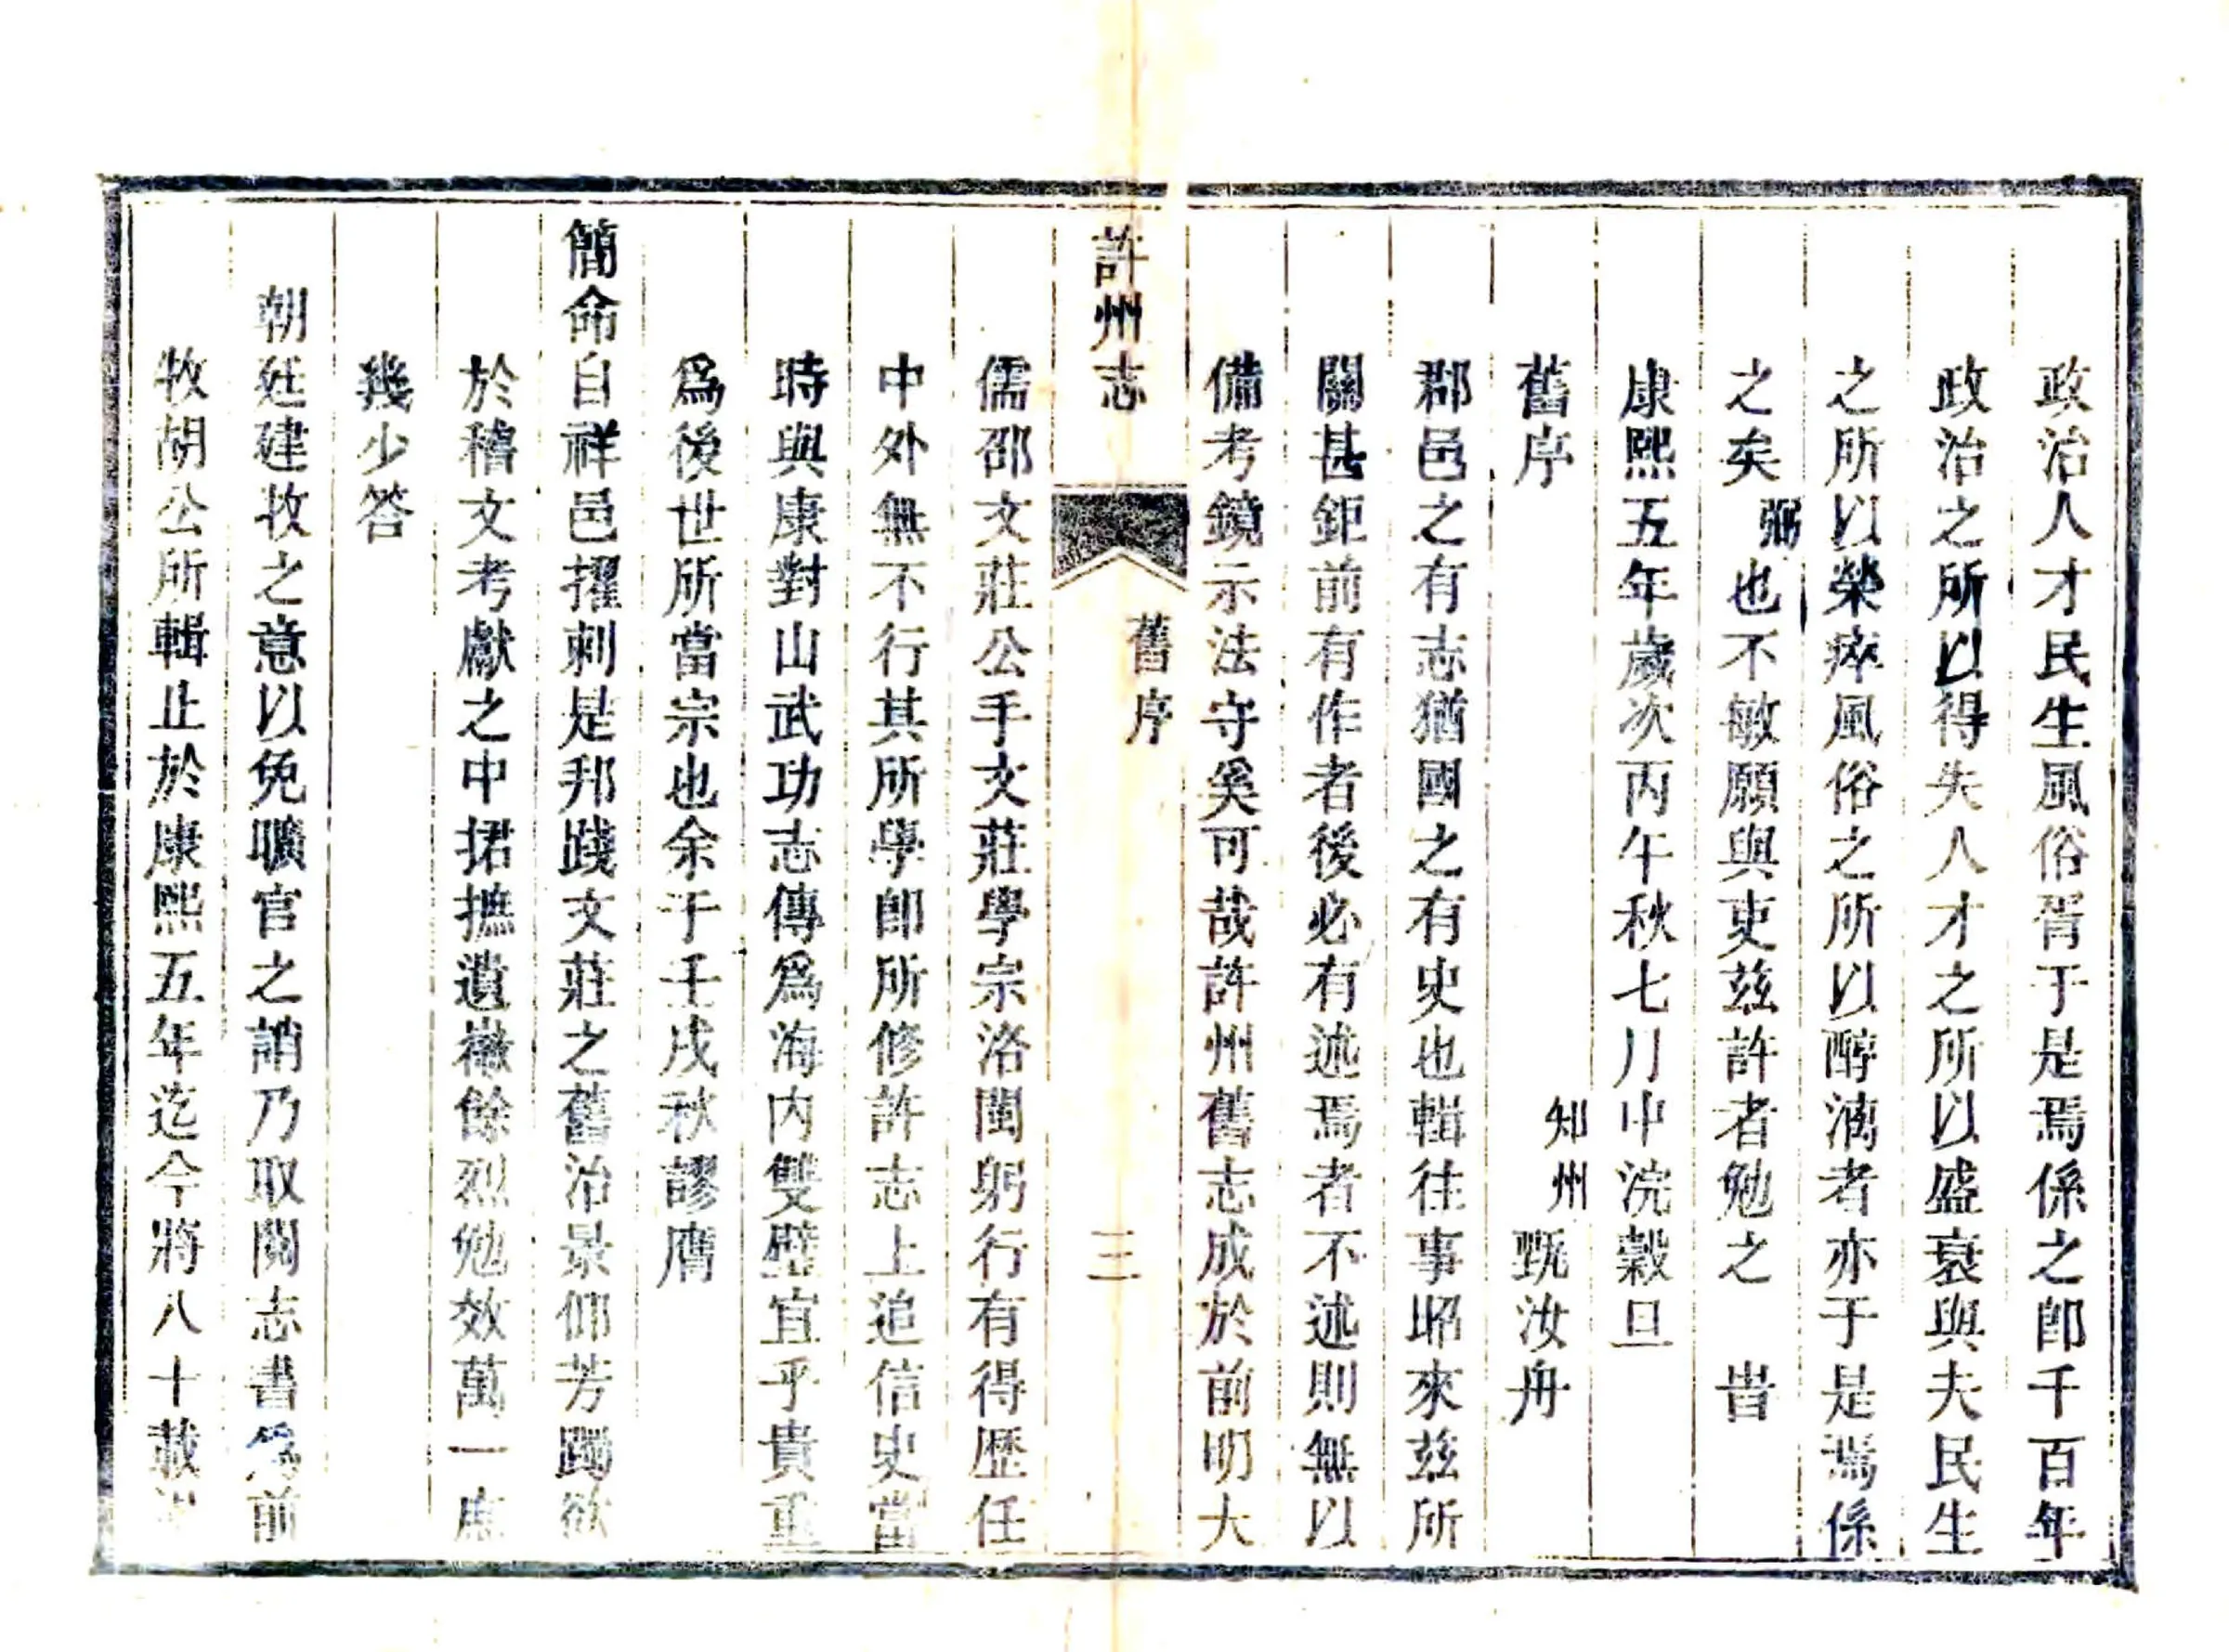 政治人才民生風俗胥于是焉係之卽千百年
政治之所以得失人才之所以盛衰與夫民生
之所以榮瘁風俗之所以醇漓者亦于是焉係
之矣弼也不敏願與吏茲許者勉之　旹
康熙五年歲次丙午秋七月中浣穀旦
舊序　知州甄汝舟
郡邑之有志猶國之有史也輯往事昭來茲所
關甚鉅前有作者後必有述焉者不述則無以
備考鏡示法守奚可哉許州舊志成於前明大
許州志　舊序　三
儒邵文莊公手文莊學宗洛閩躬行有得歷任
中外無不行其所學卽所修許志上追信史當
時與康對山武功志傳爲海內雙璧宜乎貴重
爲後世所當宗也余于壬戌秋謬膺
簡命自祥邑擢刺是邦踐文莊之舊治景仰芳躅欲
於稽文考獻之中捃摭遺徽餘烈勉效萬一庶
幾少答
朝廷建牧之意以免曠官之誚乃取閱志書爲前
牧胡公所輯止於康熙五年迄今將八十載